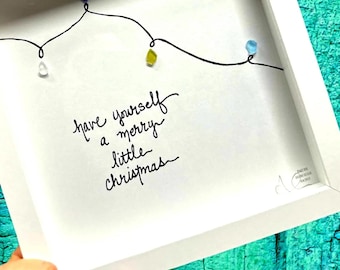 have yourself
a merry
little
christmas